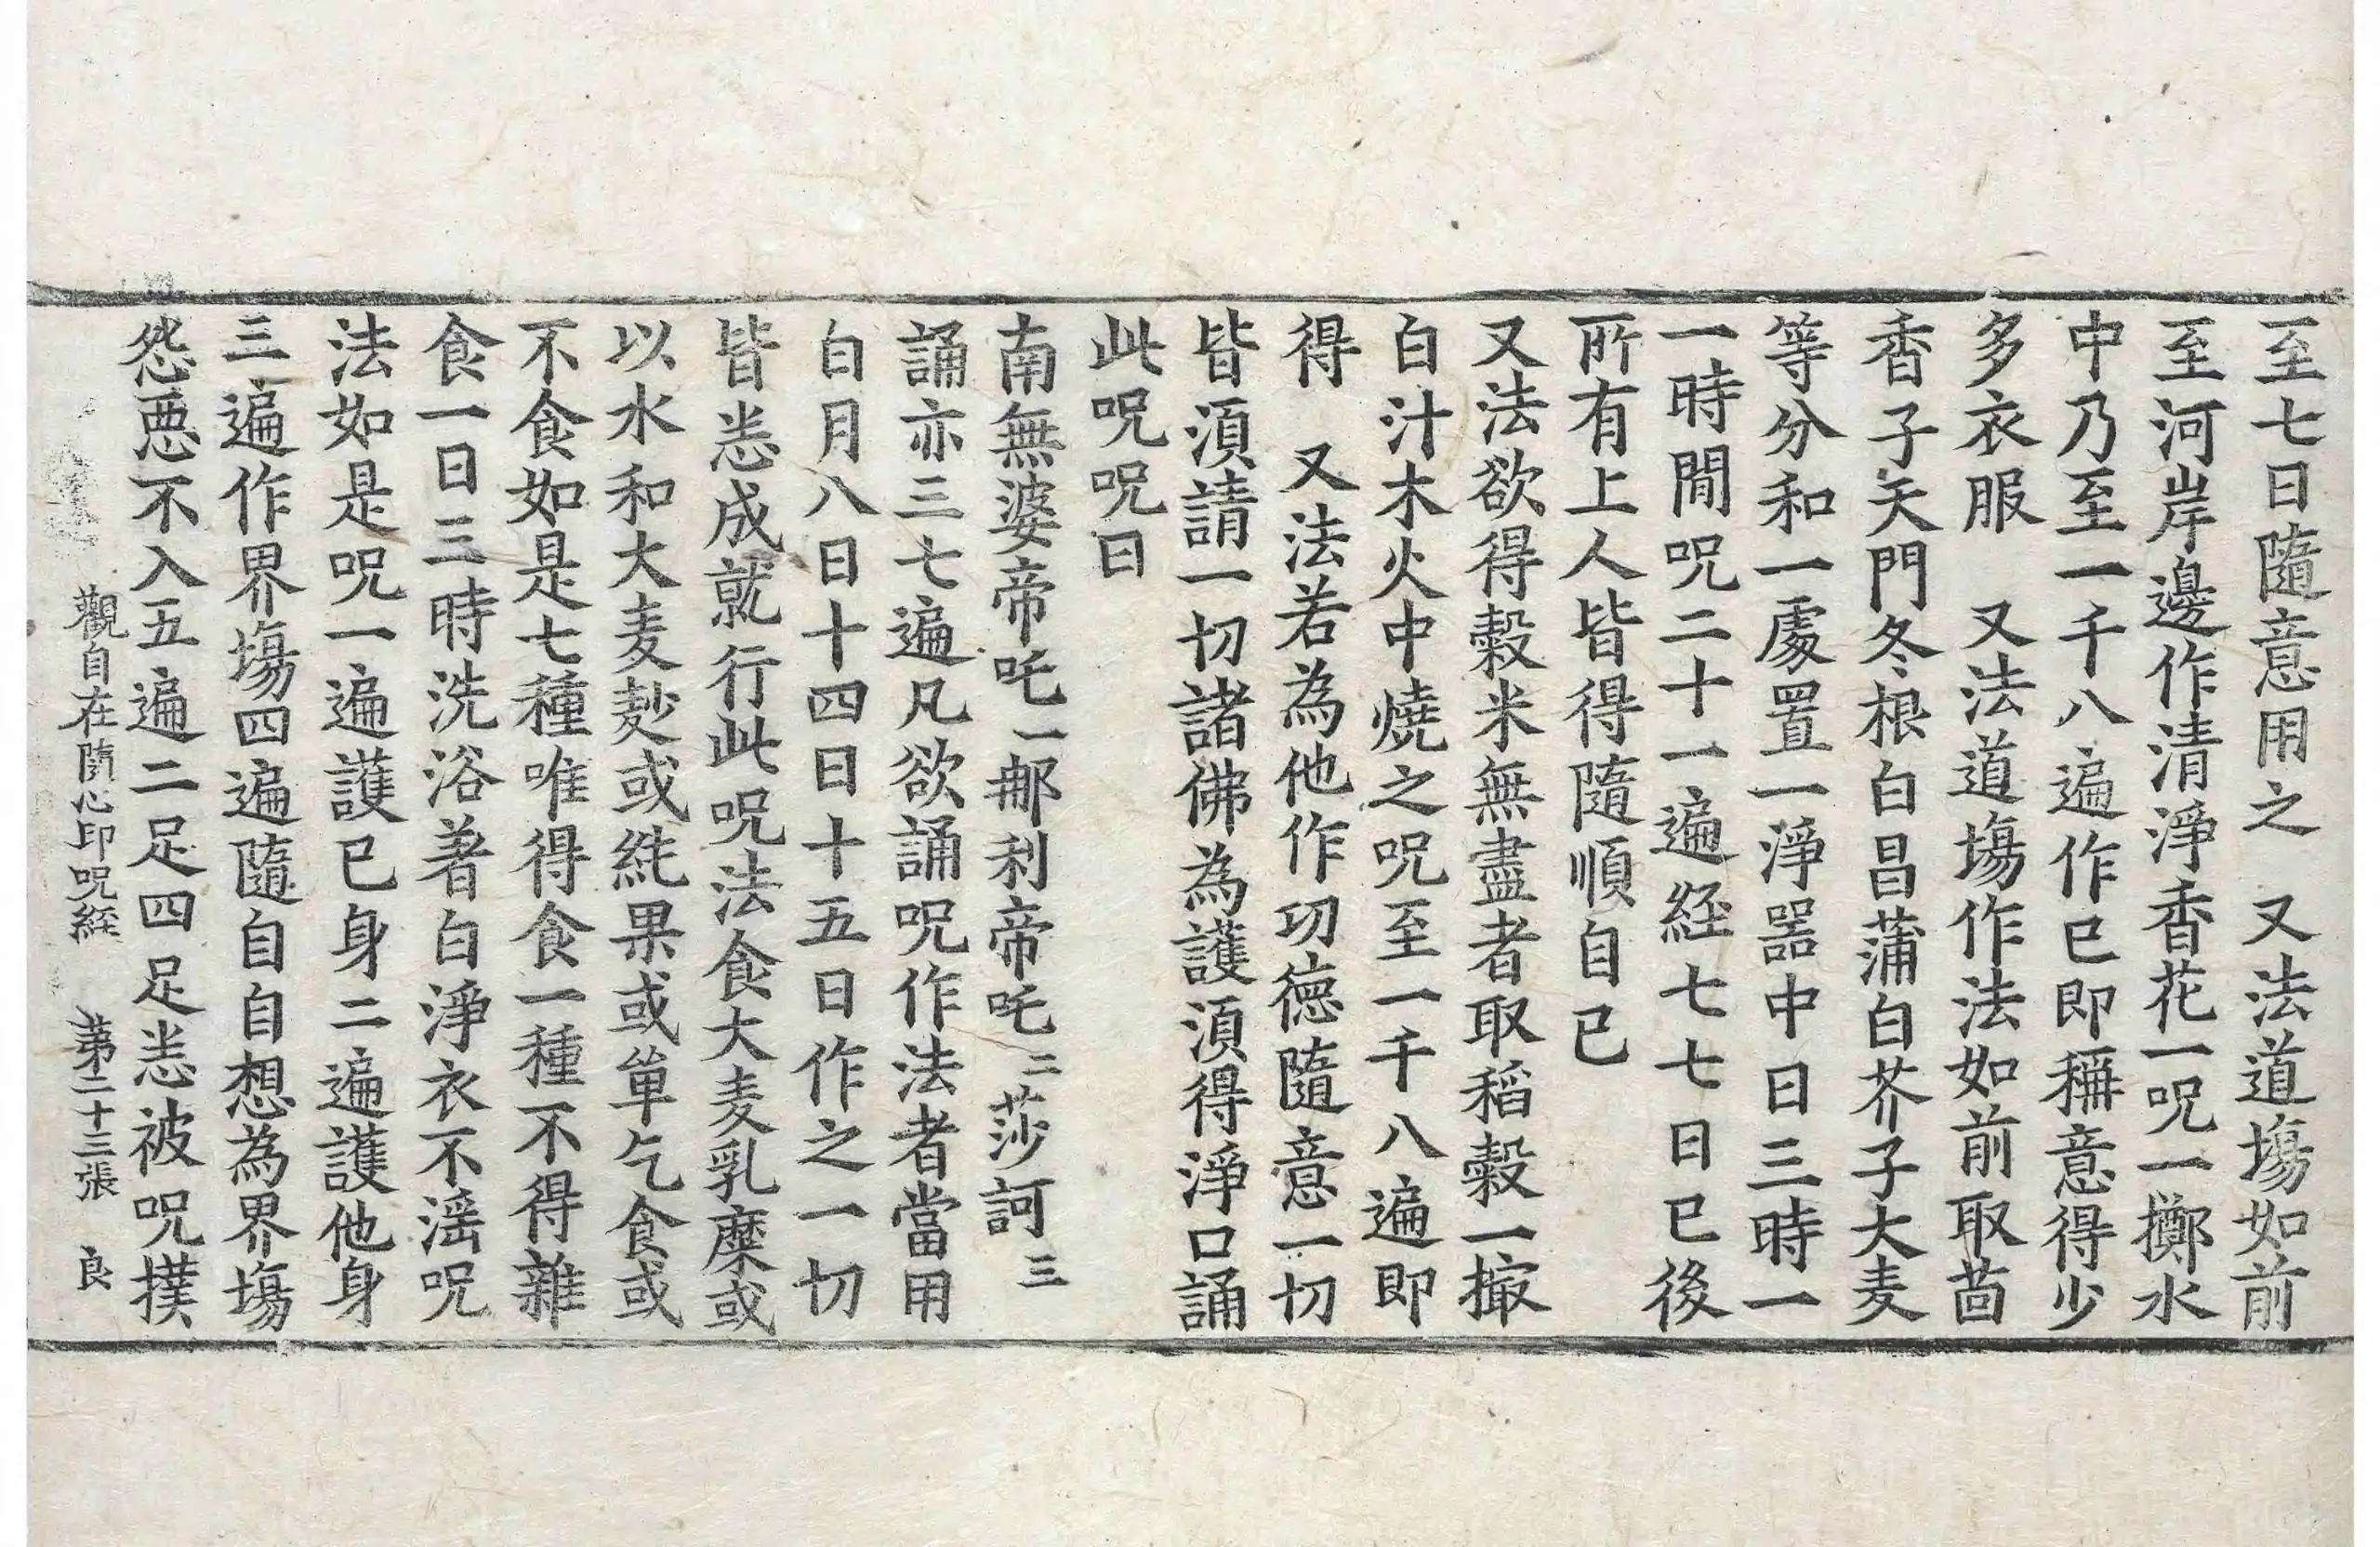 至七日隨意用之　又法道場如前
至河岸邊作清淨香花一呪一擲水
中乃至一千八遍作已即稱意得少
多衣服　又法道場作法如前取茴
香子天門冬根白昌蒲白芥子大麦
等分和一處置一淨器中日三時一
一時間呪二十一遍経七七日已後
所有上人皆得隨順自已
又法欲得穀米無盡者取稻穀一撮
白汁木火中燒之呪至一千八遍即
得　又法若為他作功德隨意一切
皆湏請一切諸佛為護湏得淨口誦
此呪呪曰
南無婆帝吒一那利帝吒二莎訶三
誦亦三七遍凡欲誦呪作法者當用
白月八日十四日十五日作之一切
皆悉成就行此呪法食大麦乳糜或
以水和大麦麨或純果或單乞食或
不食如是七種唯得食一種不得雜
食一日三時洗浴著白淨衣不滛呪
法如是呪一遍護已身二遍護他身
三遍作界塲四遍隨自自想為界塲
怨惡不入五遍二足四足悉被呪撲
觀自在隨心印呪経　第二十三張　良